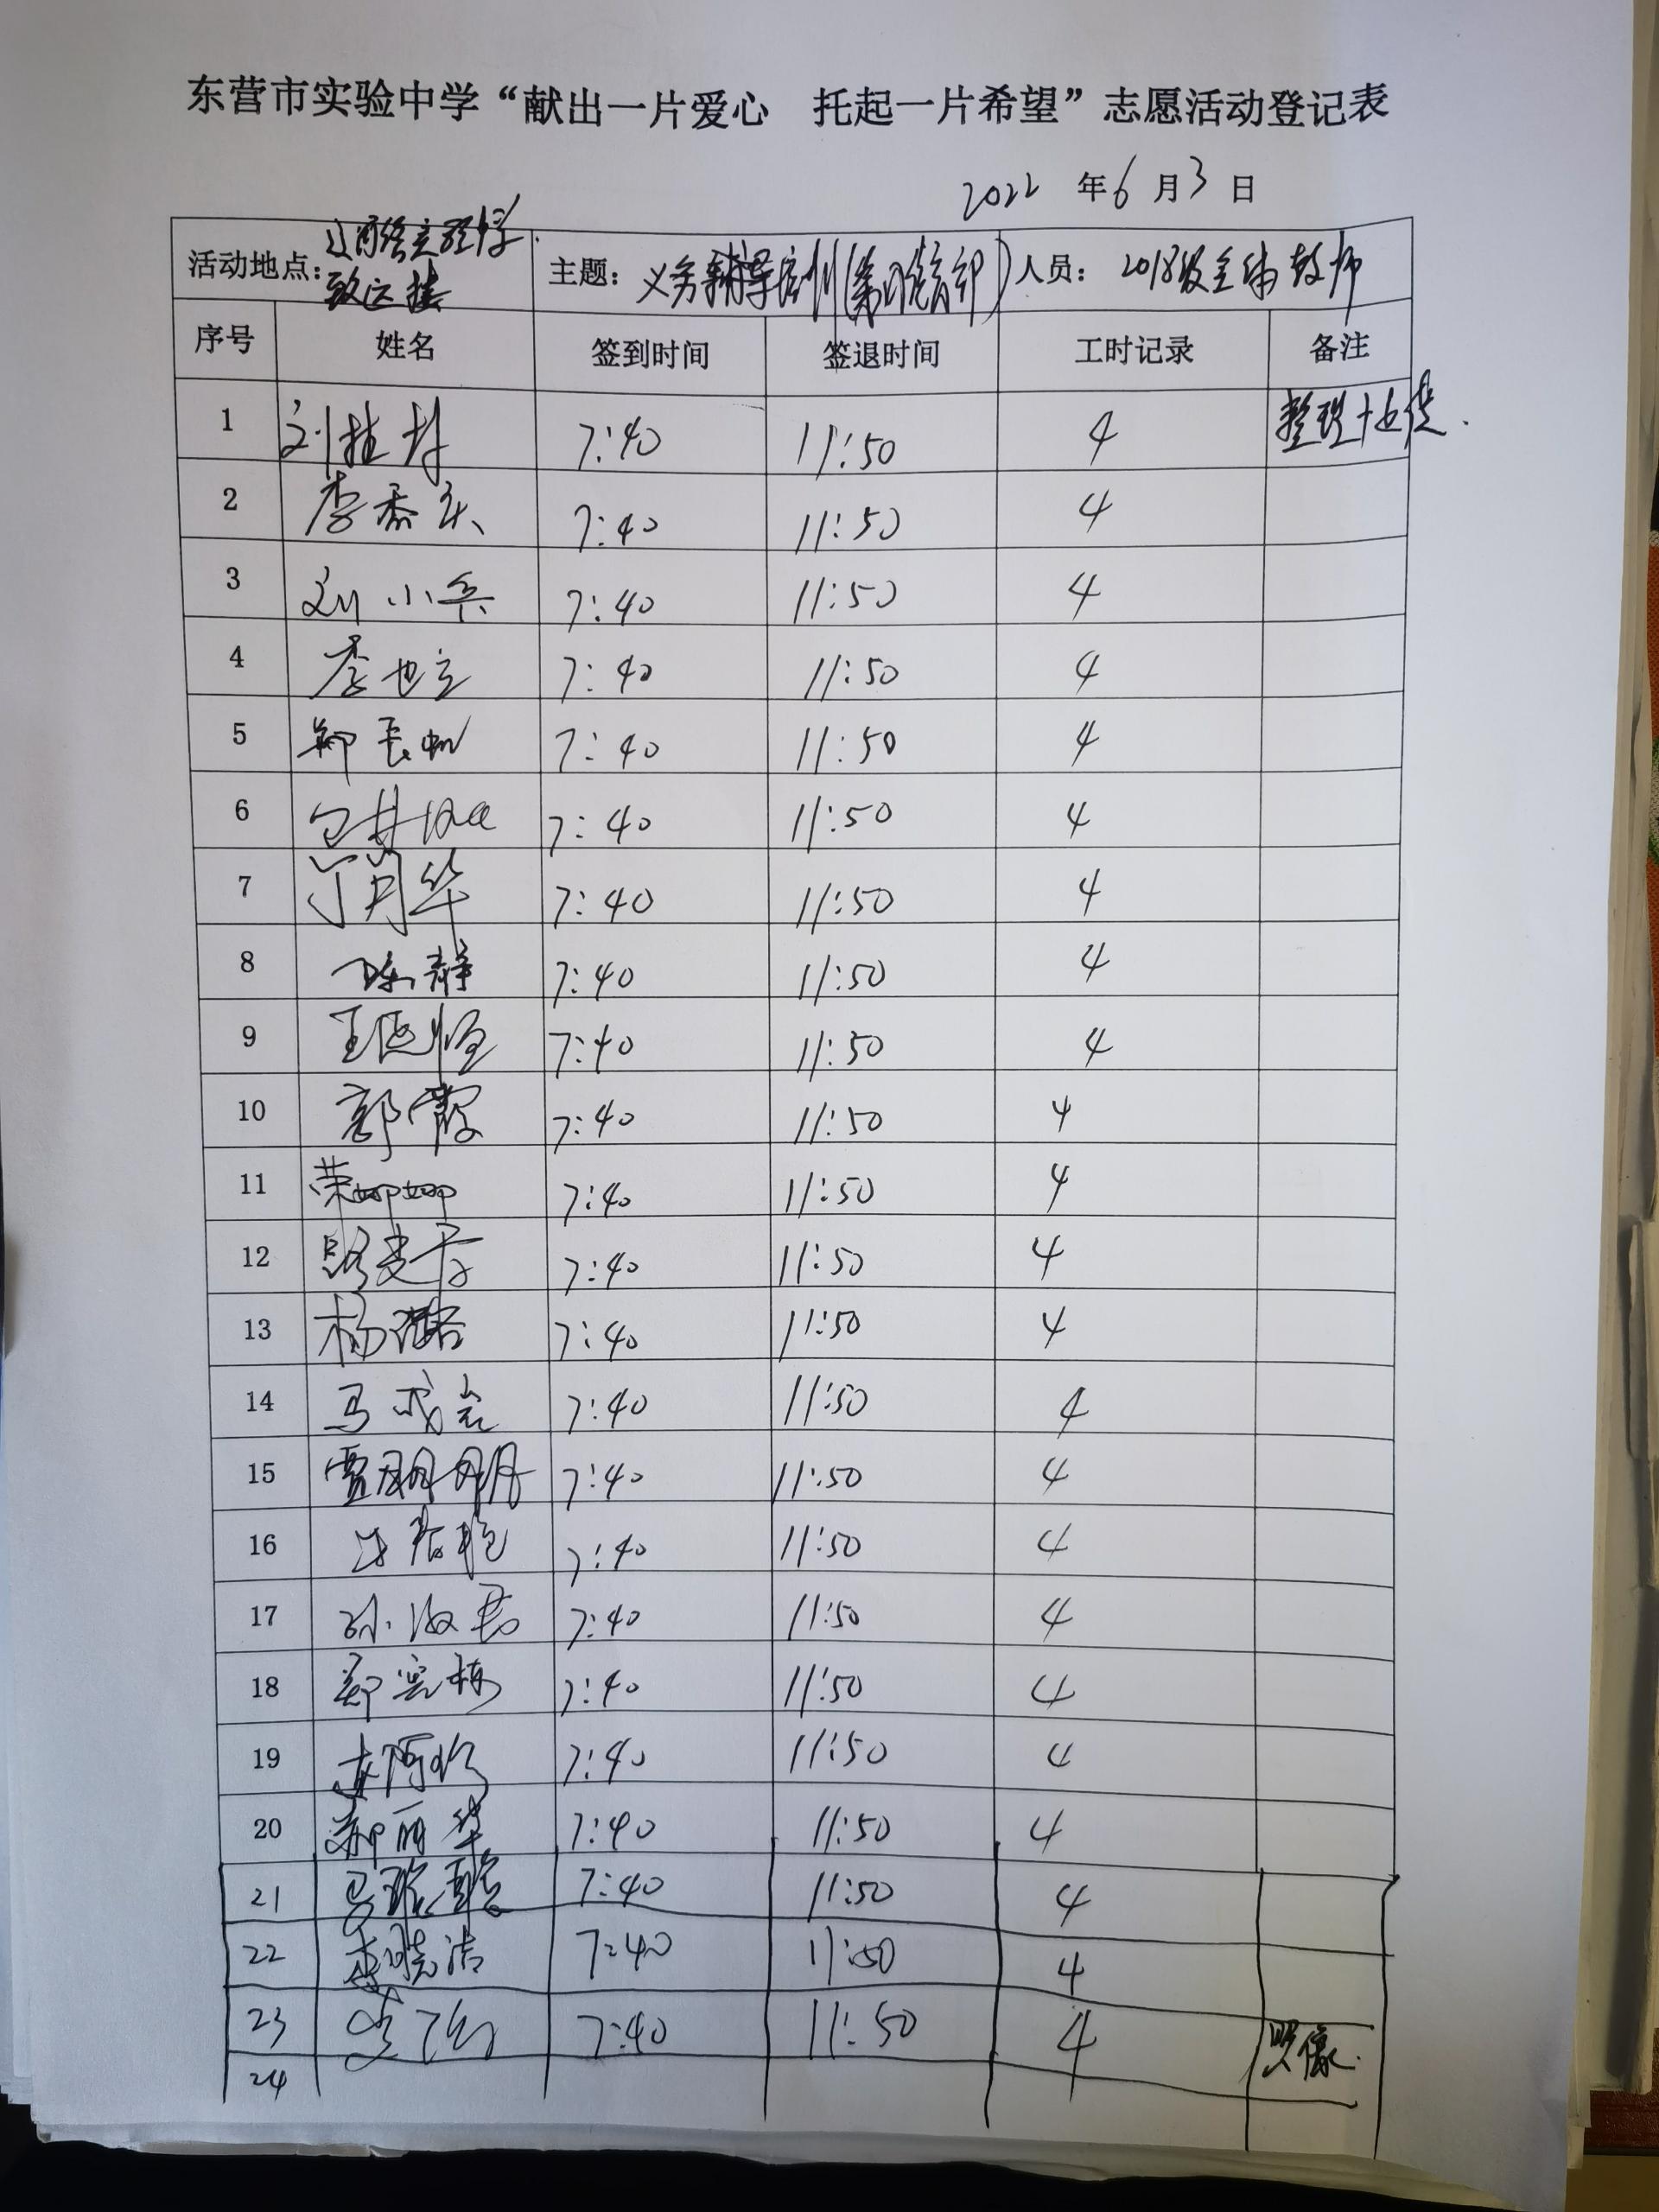 东营市实验中学“献出一片爱心 托起一片希望”志愿活动登记表
2022 年 6 月 3 日
活动地点: 致远楼 主题: 义务辅导培训 人员: 2018级全体教师
序号 姓名 签到时间 签退时间 工时记录 备注
1 7:40 11:50 4 整理
2 7:40 11:50 4
3 刘小兵 7:40 11:50 4
4 7:40 11:50 4
5 7:40 11:50 4
6 7:40 11:50 4
7 丁月华 7:40 11:50 4
8 陈静 7:40 11:50 4
9 王延恒 7:40 11:50 4
10 郭霞 7:40 11:50 4
11 荣娜娜 7:40 11:50 4
12 7:40 11:50 4
13 杨 7:40 11:50 4
14 马成岩 7:40 11:50 4
15 贾明明 7:40 11:50 4
16 7:40 11:50 4
17 孙淑君 7:40 11:50 4
18 郑宪栋 7:40 11:50 4
19 7:40 11:50 4
20 郝丽华 7:40 11:50 4
21 7:40 11:50 4
22 李晓洁 7:40 11:50 4
23 7:40 11:50 4 照像
24